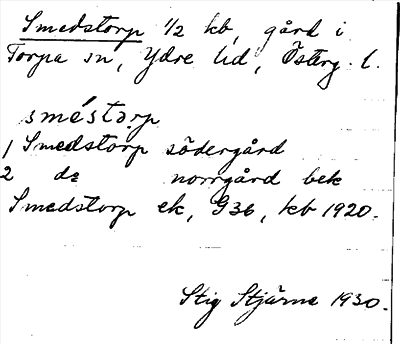 Smedstorp 1/2 kb, gård i
Torpa sn, Ydre hd, Österg. l.
sméstorp
1 Smedstorp södergård
2 do norrgård bek
Smedstorp ek, G36, kb 1920.
Stig Stjärne 1930.